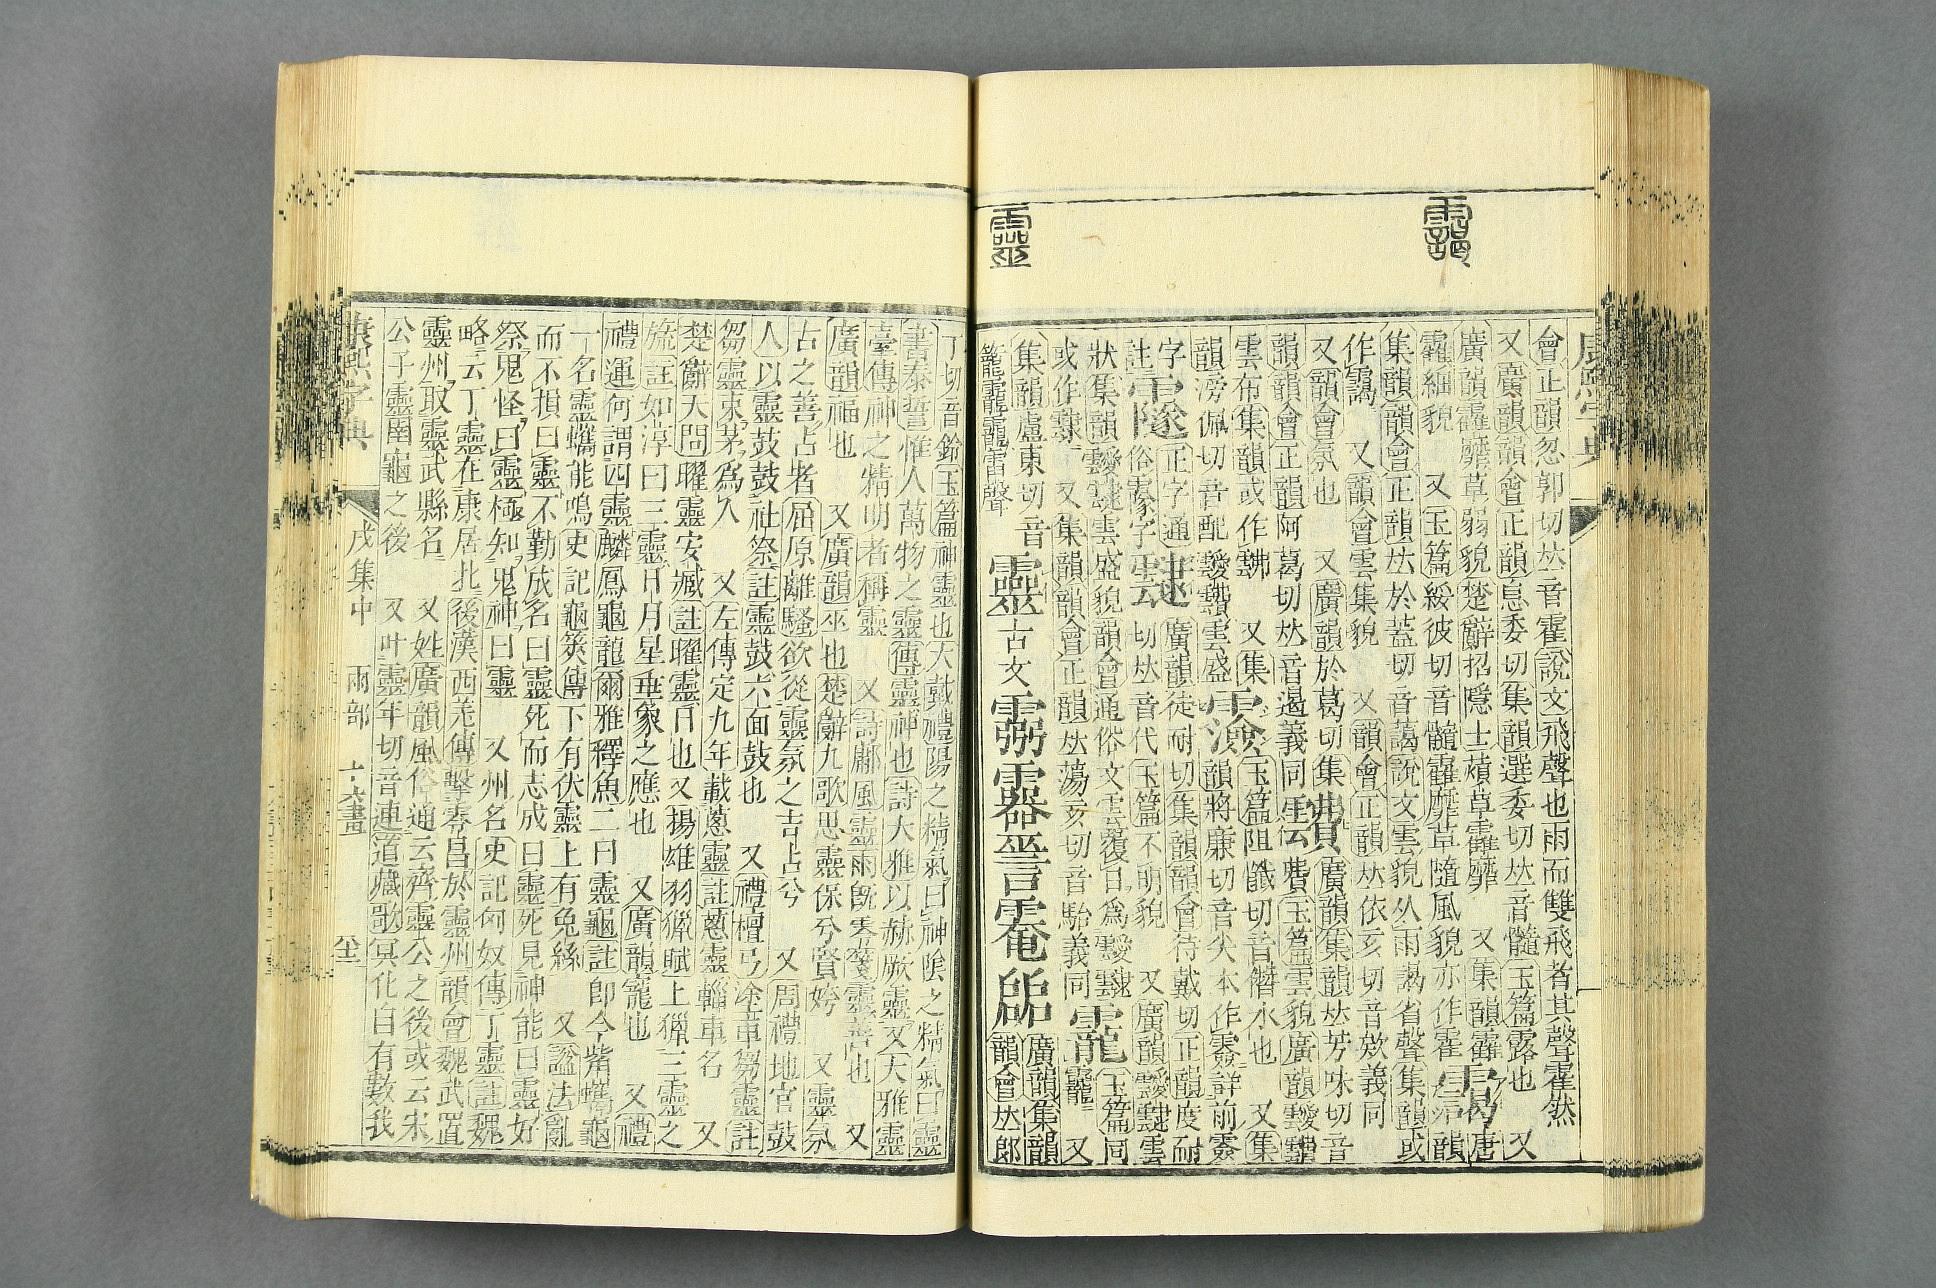 靄
靈
康熙字典
會正韻忽郭切𠀤音霍說文飛聲也雨而雙飛者其聲霍然
又廣韻韻會正韻息委切集韻選委切𠀤音髓玉篇露也 又
廣韻霍靡草弱貌楚辭招隱士蘋草霍靡 又集韻霍霍
靃細貌 又玉篇綏彼切音髓靃靡草隨風貌亦作霍 靄 唐韻
集韻韻會正韻𠀤於蓋切音藹說文雲貌从雨藹省聲集韻或
作靄 又韻會雲集貌 又韻會正韻𠀤依亥切音欸義同
又韻會氛也 又廣韻於葛切集
韻韻會正韻阿葛切𠀤音遏義同 廣韻集韻𠀤芳味切音
費玉篇雲貌廣韻靉靅
雲布集韻或作 又集
韻滂佩切音配靉靅雲盛 玉篇阻懺切音僭水也 又集
韻將廉切音尖本作霠詳前霠
字註 正字通俗䨴字 靆 廣韻徒耐切集韻韻會待戴切正韻度耐
切𠀤音代玉篇不明貌 又廣韻靉靆雲
狀集韻靉靆雲盛貌韻會通俗文雲覆日為靉靆
或作 又集韻韻會正韻𠀤蕩亥切音駘義同 玉篇同
靇 又
集韻盧東切音
籠靇靇雷聲 靈 古文 廣韻集韻
韻會𠀤郎
丁切音鈴玉篇神靈也大戴禮陽之精氣曰神陰之精氣曰靈
書泰誓惟人萬物之靈傳靈神也詩大雅以赫厥靈又大雅靈
臺傳神之精明者稱靈 又詩鄘風靈雨旣零箋靈善也 又
廣韻福也 又廣韻巫也楚辭九歌思靈保兮賢姱 又靈氛
古之善占者屈原離騷欲從靈氛之吉占兮 又周禮地官鼓
人以靈鼓鼓社祭註靈鼓六面鼓也 又禮檀弓塗車芻靈註
芻靈束茅為人 又左傳定九年載蔥靈註蔥靈輜車名 又
楚辭天問曜靈安臧註曜靈日也又揚雄羽獵賦上獵三靈之
旒註如淳曰三靈日月星垂象之應也 又廣韻寵也 又禮
禮運何謂四靈麟鳳龜龍爾雅釋魚二曰靈龜註卽今觜蠵龜
一名靈蠵能鳴史記龜筴傳下有伏靈上有兔絲 又諡法亂
而不損曰靈不勤成名曰靈死而志成曰靈死見神能曰靈好
祭鬼怪曰靈極知鬼神曰靈 又州名史記匈奴傳丁靈註魏
略云丁靈在康居北後漢西羌傳擊零昌於靈州韻會魏武置
靈州取靈武縣名 又姓廣韻風俗通云齊靈公之後或云宋
公子靈圍龜之後 又叶靈年切音連道藏歌冥化自有數我
康熙字典 戌集中 雨部 十六畫